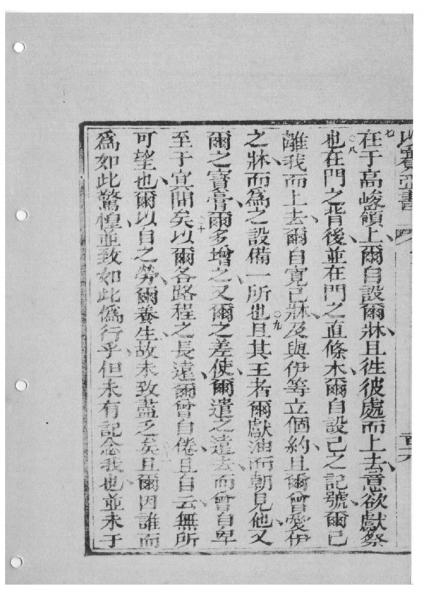 以賽亞書
七在于高峻嶺上爾自設爾牀且徃彼處而上去意欲獻祭
八也在門之背後並在門之直條木爾自設己之記號爾已
離我而上去爾自寬已牀及與伊等立個約且爾曾愛伊
之牀而爲之設備一所也九且其王者爾獻油而朝見他又
爾之寶膏爾多增之又爾之差使爾遣之遠去而曾自卑
至于冥間矣十以爾各路程之長遠爾曾自倦且自云無所
可望也爾以自之勞爾養生故未致藎之矣且爾因誰而
爲如此驚惶並致如此僞行乎但未有記念我也並未于